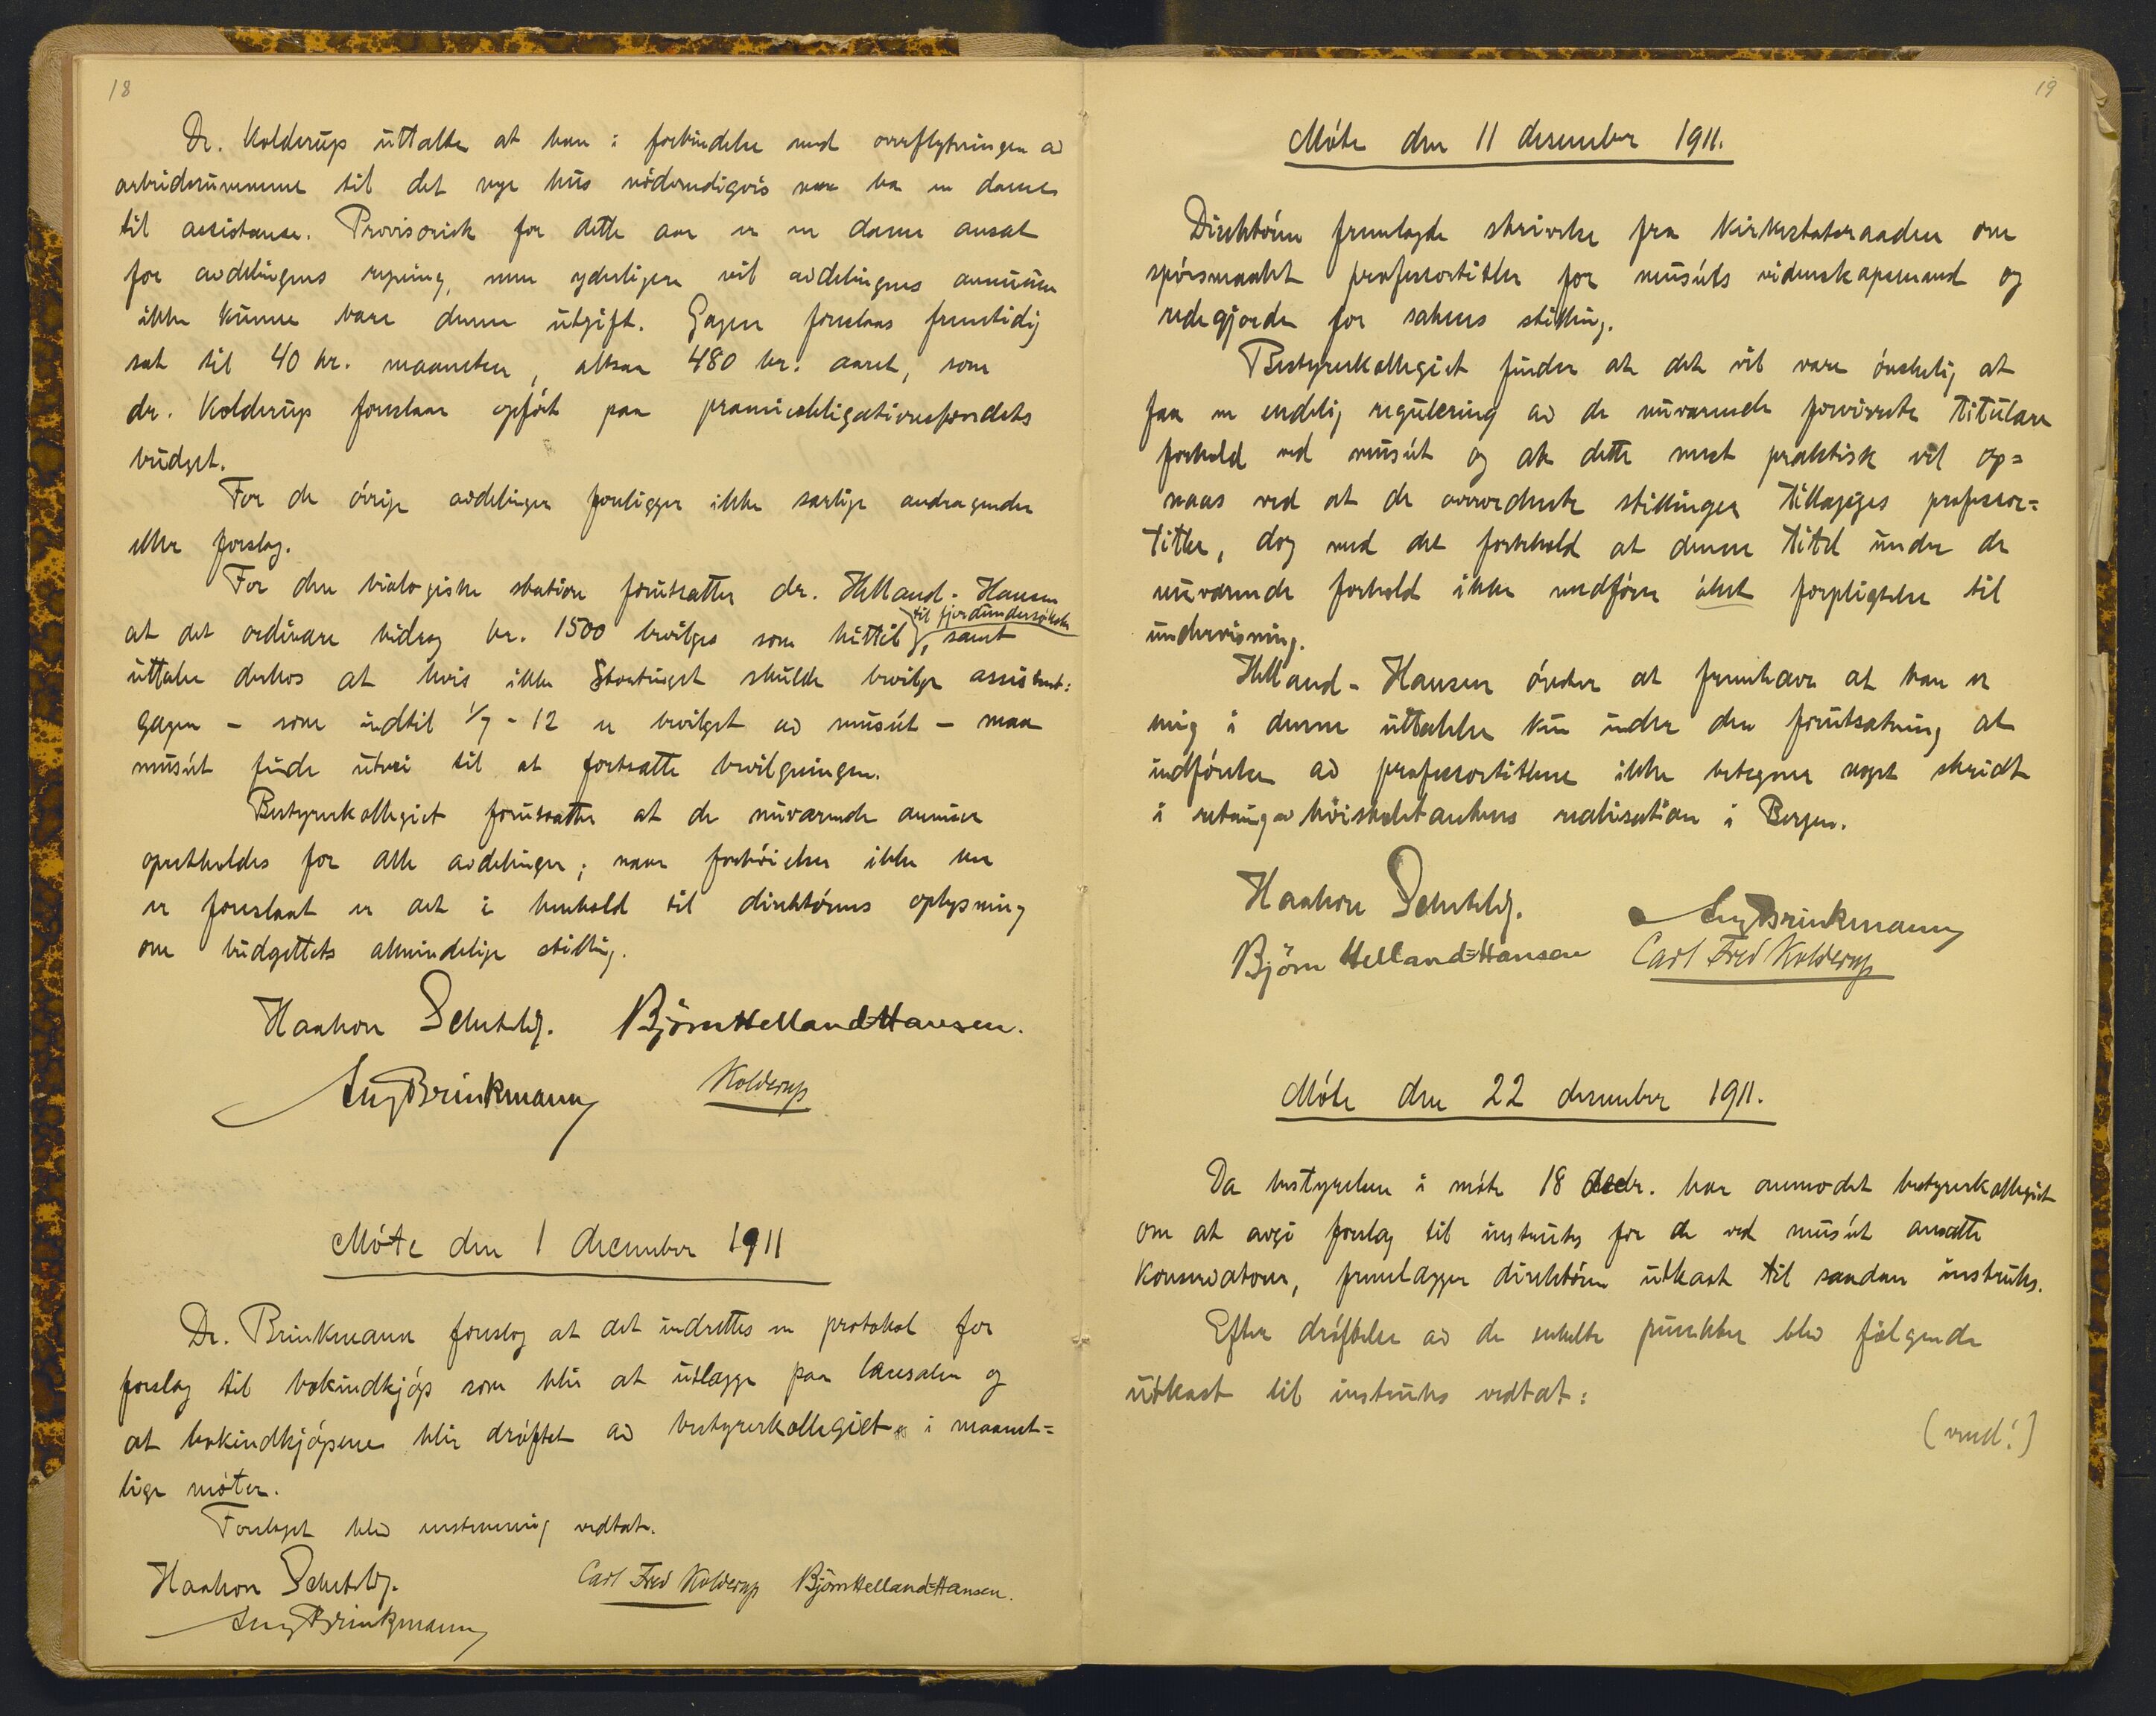 18
Dr. Kolderup uttalte at han i forbindelse med overflytningen av
arbeidsrummene til det nye hus nødvendigvis maa ha en dame
til assistanse. Provisorisk for dette aar er en dame ansat
for avdelingens regning, men yderligere vil avdelingens annuum
ikke kunne bære denne utgift. Gagen foreslaas fremtidig
sat til 40 kr. maaneden, altsaa 480 kr. aaret, som
dr. Kolderup foreslaar opført paa præmieobligationsfondets
budget.
For de øvrige avdelinger foreligger ikke særlige andragender
eller forslag.
For den biologiske station forutsætter dr. Helland-Hansen
at det ordinære bidrag kr. 1500 bevilges som hittil til fjordundersøkelser, samt
uttaler derhos at hvis ikke Stortinget skulde bevilge assistent-
gagen – som indtil 1/7-12 er bevilget av muséet – maa
muséet finde utvei til at fortsætte bevilgningen.
Bestyrerkollegiet forutsætter at de nuværende annuer
opretholdes for alle avdelinger; naar forhøielser ikke her
er foreslaat er det i henhold til direktørens oplysning
om budgettets almindelige stilling.
Haakon Schetelig. Bjørn Helland-Hansen.
Aug Brinkmann Kolderup
Møte den 1 december 1911
Dr. Brinkmann foreslog at det indrettes en protokol for
forslag til bokindkjøp som blir at utlægge paa læsesalen og
at bokindkjøpene blir drøftet av bestyrerkollegiet i maanet-
lige møter.
Forslaget blev enstemmig vedtat.
Haakon Schetelig. Carl Fred Kolderup Bjørn Helland-Hansen.
Aug Brinkmann
19
Møte den 11 desember 1911.
Direktøren fremlagde skrivelse fra Kirkestatsraaden om
spørsmaalet professortitler for muséets videnskapsmænd og
redegjorde for sakens stilling.
Bestyrerkollegiet finder at det vil være ønskelig at
faa en endelig regulering av de nuværende forvirrede titulære
forhold ved muséet og at dette mest praktisk vil op-
naaes ved at de overordnede stillinger tillægges professor-
titler, dog med det forbehold at denne titel under de
nuværende forhold ikke medfører øket forpligtelse til
undervisning.
Helland-Hansen ønsker at fremhæve at han er
enig i denne uttalelse kun under den forutsætning at
indførelsen av professortitlene ikke betegner noget skridt
i retning av høiskoletankens realisation i Bergen.
Haakon Schetelig. Aug Brinkmann
Bjørn Helland-Hansen Carl Fred Kolderup
Møte den 22 desember 1911.
Da bestyrelsen i møte 18 decbr. har anmodet bestyrerkollegiet
om at avgi forslag til instruks for de ved muséet ansatte
konservatorer, fremlægger direktøren utkast til saadan instruks.
Efter drøftelse av de enkelte punkter blev følgende
utkast til instruks vedtat:
(vend!)